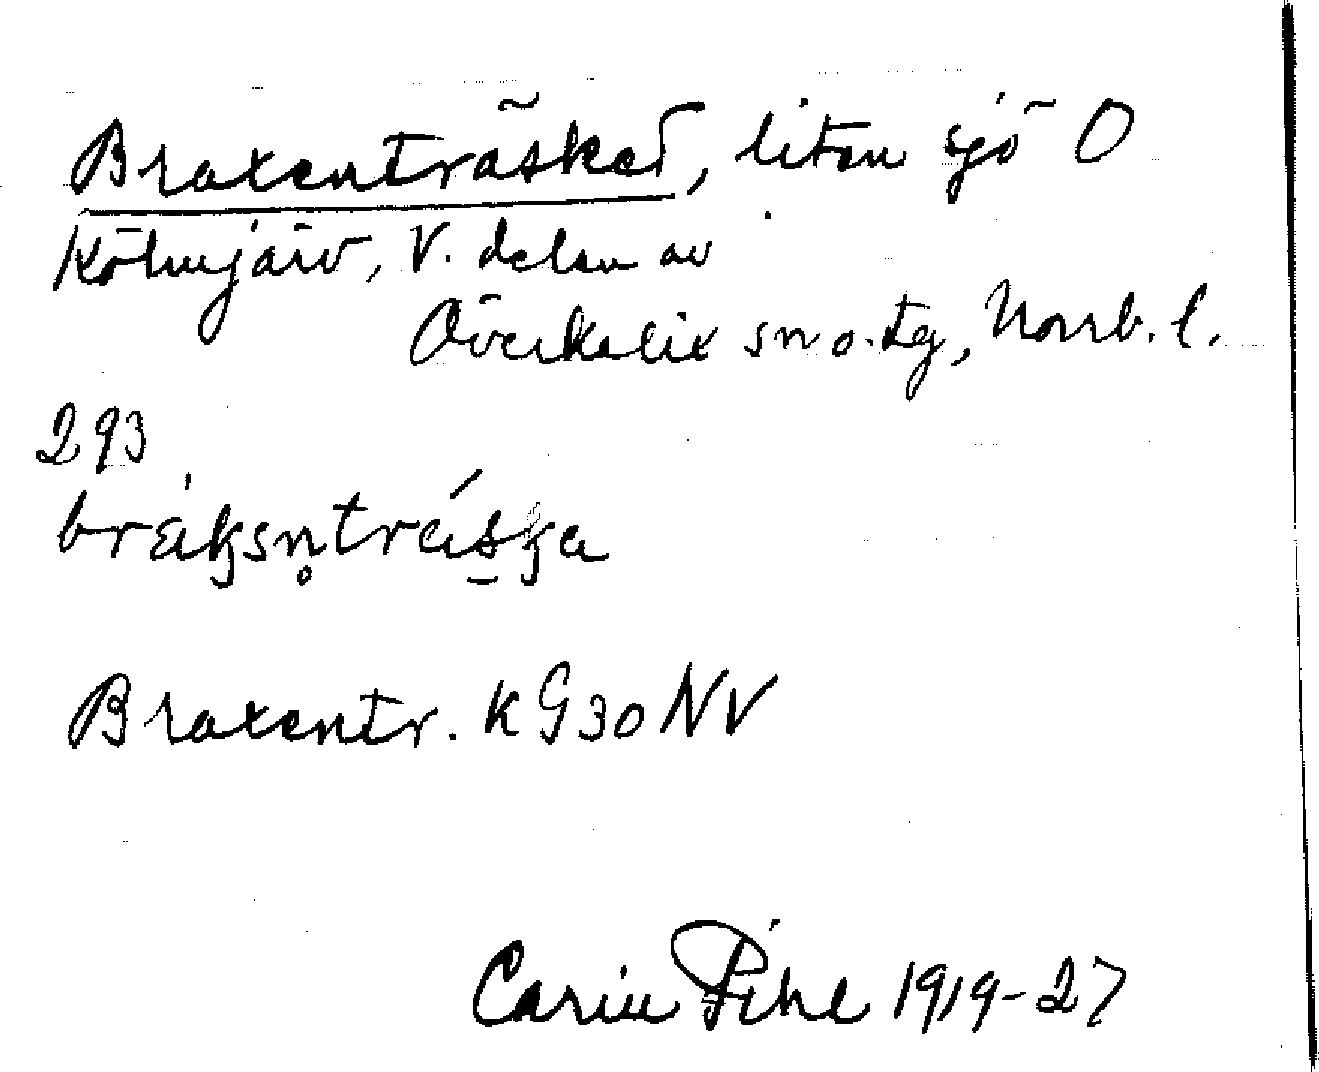 Braxenträsket, liten sjö O
Kölmjärv, V. delen av
Överkalix sn o. tg, Norrb. l.
293
bráksn̥tráska
Braxentr. KG30NV
Carin Pihl 1919-27